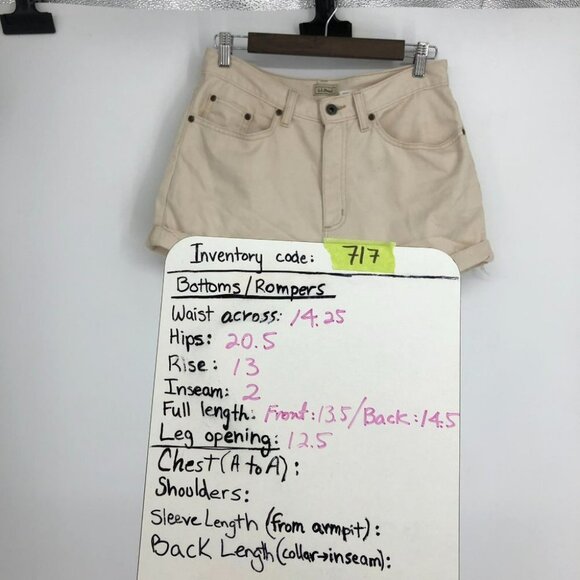 Inventory code: 717
Bottoms/Rompers
Waist across: 14.25
Hips: 20.5
Rise: 13
Inseam: 2
Full length: Front:13.5/Back:14.5
Leg opening: 12.5
Chest (A to A):
Shoulders:
Sleeve Length (from armpit):
Back Length (collar→inseam):